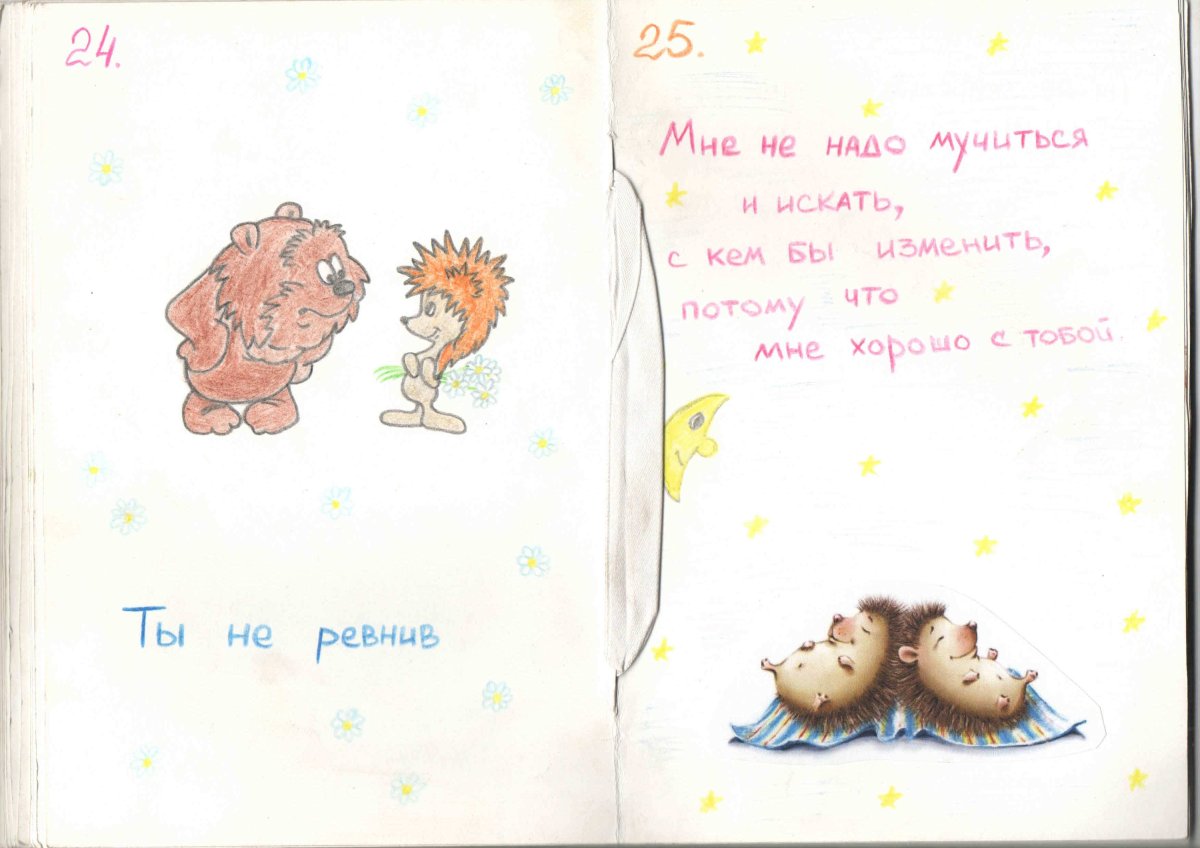 24.
Ты не ревнив
25.
Мне не надо мучиться
и искать,
с кем бы изменить,
потому что
мне хорошо с тобой.